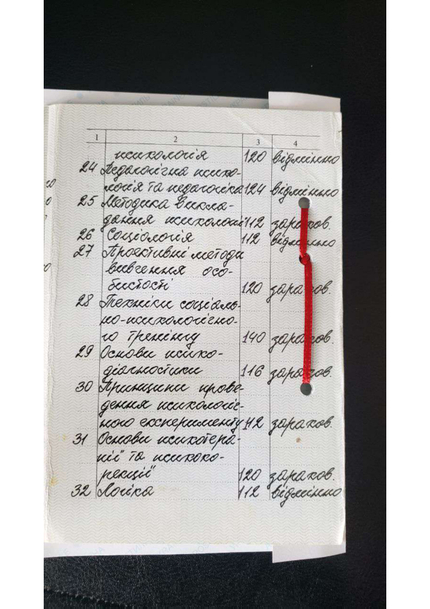 1 2 3 4
психологія 120 відмінно
24 Педагогічна психо-
логія та педагогіка 124 відмінно
25 Методика викла-
дання психології 112 зарахов.
26 Соціологія 112 відмінно
27 Проективні методи
вивчення осо-
бистості 120 зарахов.
28 Техніки соціаль-
но-психологічно-
го тренінгу 140 зарахов.
29 Основи психо-
діагностики 116 зарахов.
30 Принципи прове-
дення психологіч-
ного експерименту 112 зарахов.
31 Основи психотера-
пії та психоко-
рекції 120 зарахов.
32 Логіка 112 відмінно